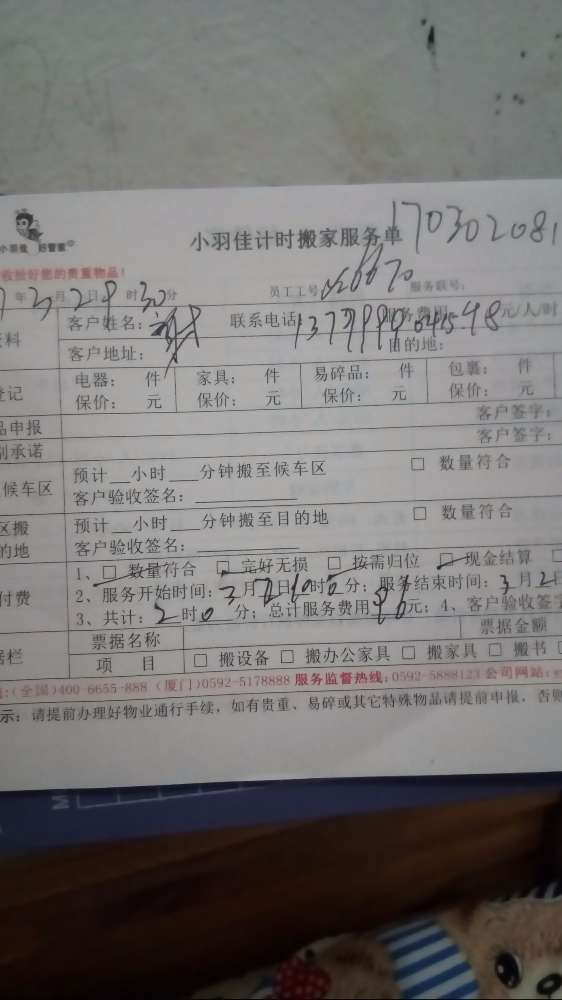 小羽佳 好管家
小羽佳计时搬家服务单 170302081
收拾好您的贵重物品!
年3月2日 时30分 员工工号 服务联号:
客户姓名: 联系电话 服务费用 48元/人/时
客户地址: 目的地:
登记 电器: 件 家具: 件 易碎品: 件 包裹: 件
保价: 元 保价: 元 保价: 元 保价: 元
品申报 客户签字:
别承诺 客户签字:
候车区 预计__小时___分钟搬至候车区 □ 数量符合
客户验收签名:
区搬 预计__小时___分钟搬至目的地 □ 数量符合
的地 客户验收签名:
1、□ 数量符合 □ 完好无损 □ 按需归位 □ 现金结算 □
付费 2、服务开始时间:3月2日 时 分;服务结束时间:3月2日
3、共计:2时0分;总计服务费用96元;4、客户验收签字
票据名称 票据金额
据栏 项 目 □ 搬设备 □ 搬办公家具 □ 搬家具 □ 搬书 □
:(全国)400-6655-888 (厦门)0592-5178888 服务监督热线:0592-5888123 公司网站:
示:请提前办理好物业通行手续,如有贵重、易碎或其它特殊物品请提前申报,否则